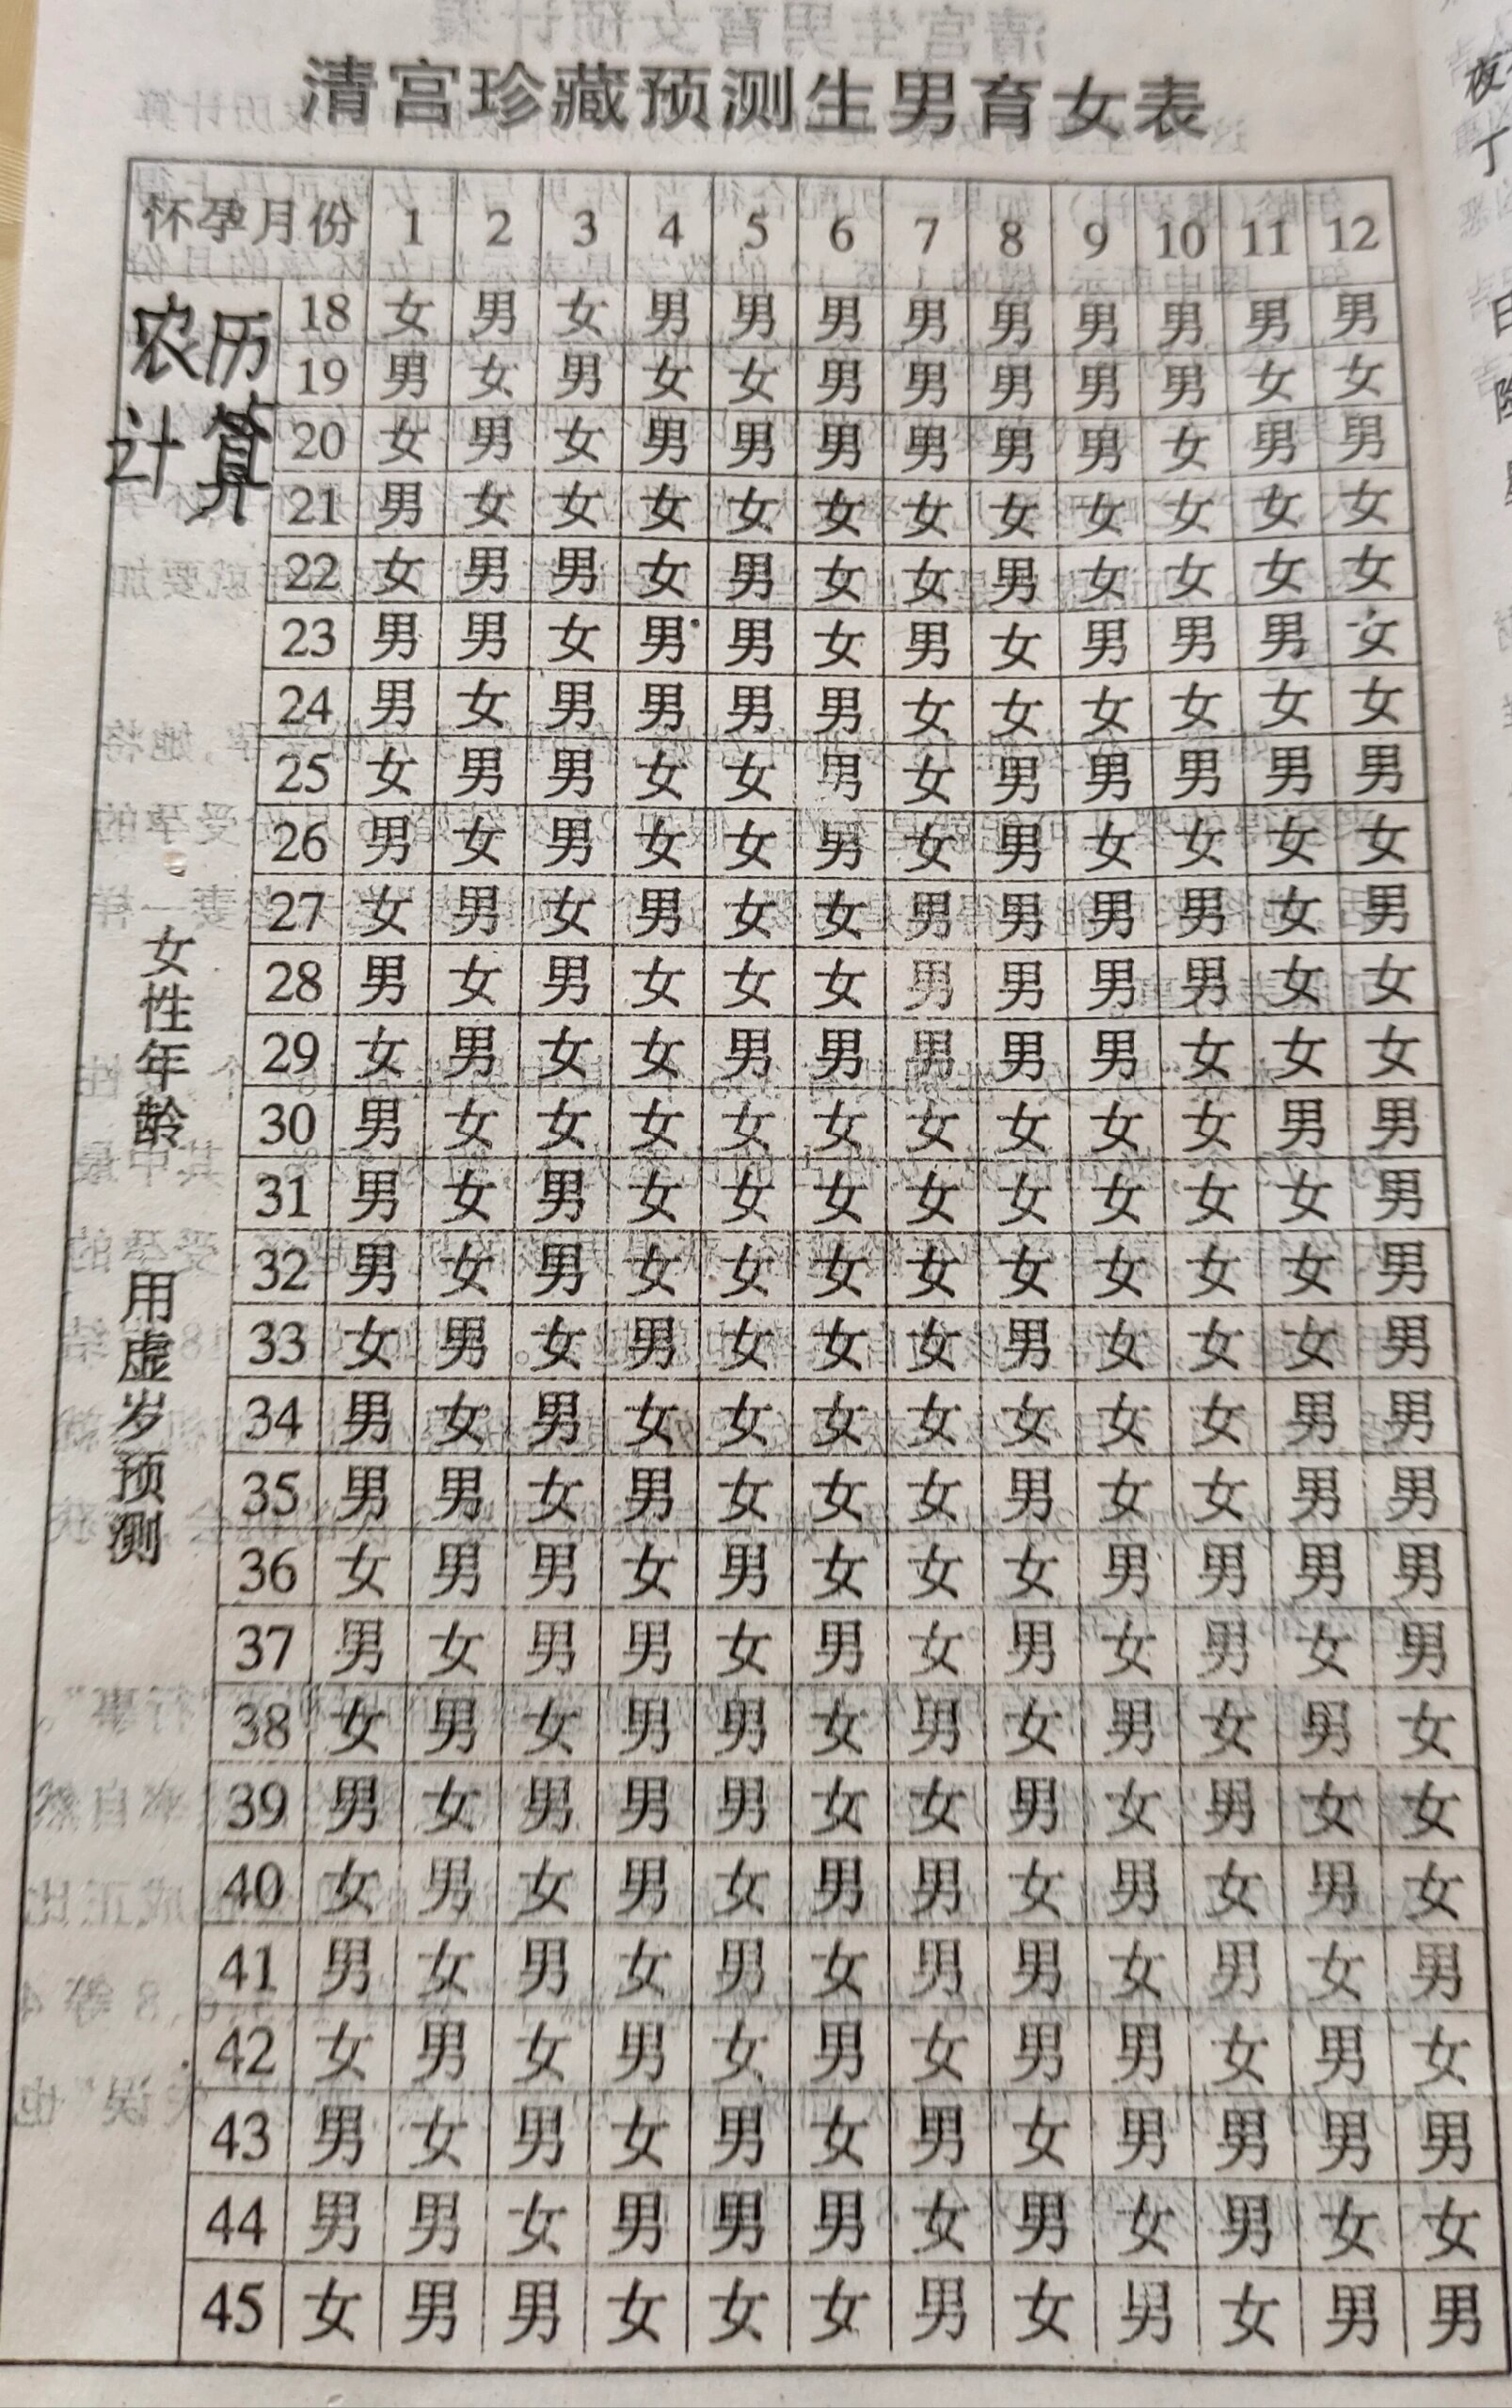 清宫珍藏预测生男育女表
怀孕月份 1 2 3 4 5 6 7 8 9 10 11 12
农历
计算
女性年龄 用虚岁预测
18 女 男 女 男 男 男 男 男 男 男 男 男
19 男 女 男 女 女 男 男 男 男 男 女 女
20 女 男 女 男 男 男 男 男 男 女 男 男
21 男 女 女 女 女 女 女 女 女 女 女 女
22 女 男 男 女 男 女 女 男 女 女 女 女
23 男 男 女 男 男 女 男 女 男 男 男 女
24 男 女 男 男 男 男 女 女 女 女 女 女
25 女 男 男 女 女 男 女 男 男 男 男 男
26 男 女 男 女 女 男 女 男 女 女 女 女
27 女 男 女 男 女 女 男 男 男 男 女 男
28 男 女 男 女 女 女 男 男 男 男 女 女
29 女 男 女 女 男 男 男 男 男 女 女 女
30 男 女 女 女 女 女 女 女 女 女 男 男
31 男 女 男 女 女 女 女 女 女 女 女 男
32 男 女 男 女 女 女 女 女 女 女 女 男
33 女 男 女 男 女 女 女 男 女 女 女 男
34 男 女 男 女 女 女 女 女 女 女 男 男
35 男 男 女 男 女 女 女 男 女 女 男 男
36 女 男 男 女 男 女 女 女 男 男 男 男
37 男 女 男 男 女 男 女 男 女 男 女 男
38 女 男 女 男 男 女 男 女 男 女 男 女
39 男 女 男 男 男 女 女 男 女 男 女 女
40 女 男 女 男 女 男 男 女 男 女 男 女
41 男 女 男 女 男 女 男 男 女 男 女 男
42 女 男 女 男 女 男 女 男 男 女 男 女
43 男 女 男 女 男 女 男 女 男 男 男 男
44 男 男 女 男 男 男 女 男 女 男 女 女
45 女 男 男 女 女 女 男 女 男 女 男 男